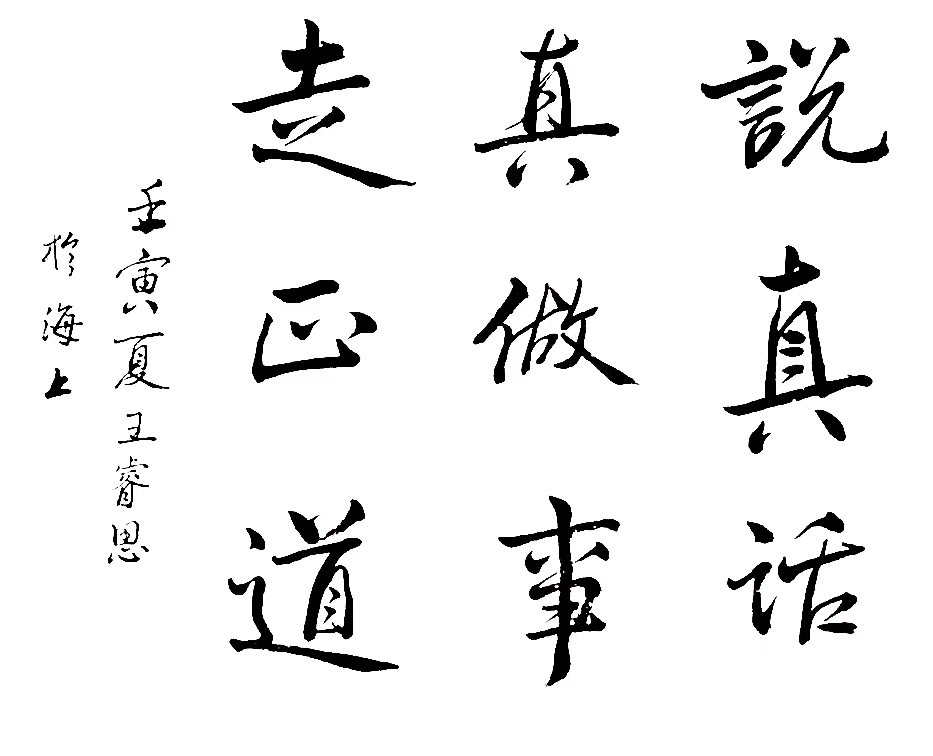 說真話
真做事
走正道
壬寅夏王睿思
於海上